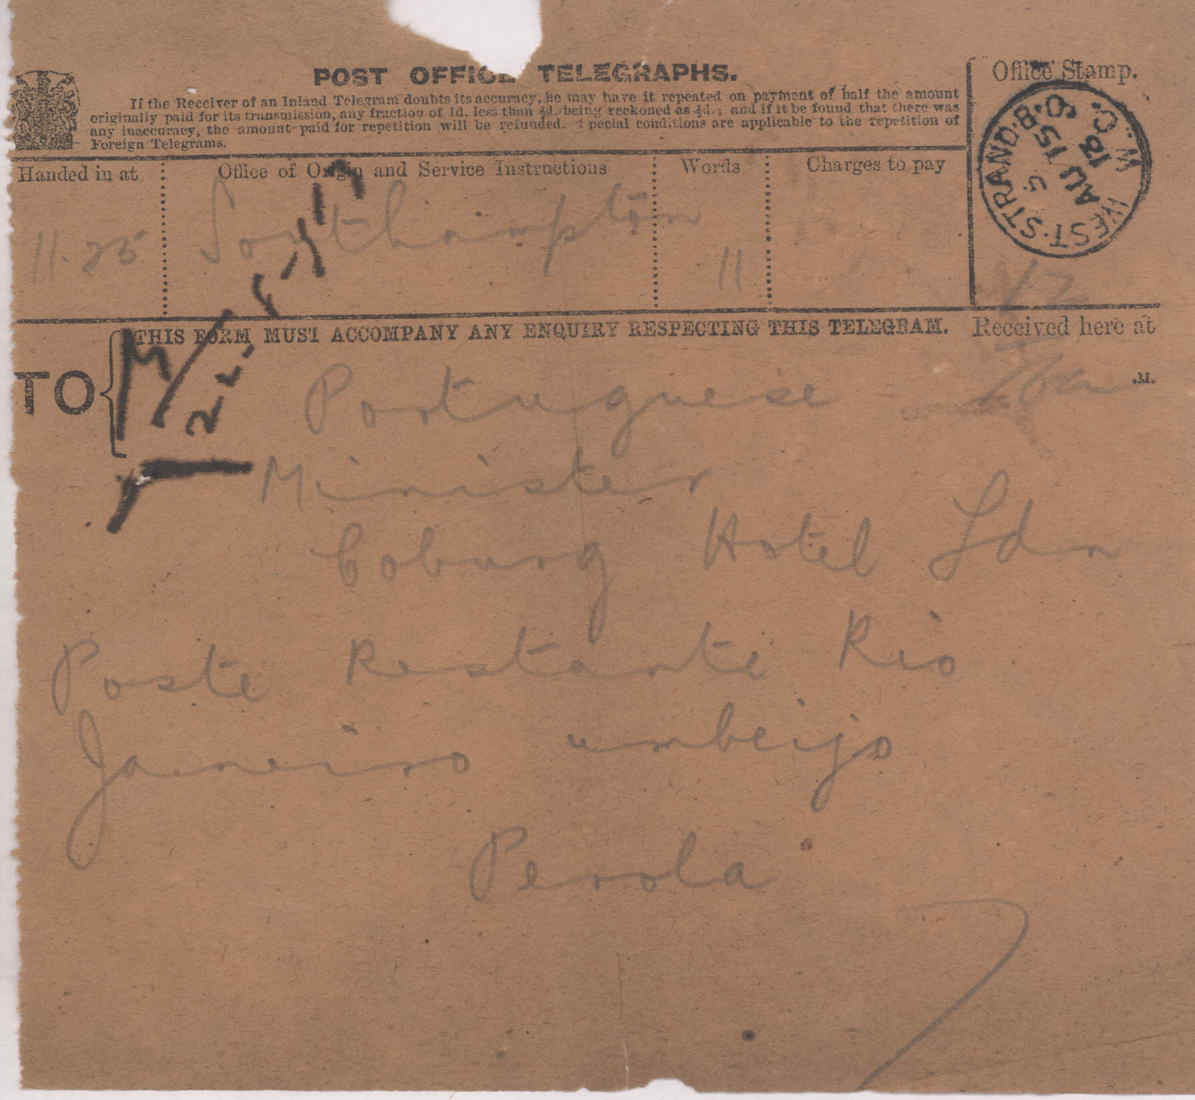 POST OFFICE TELEGRAPHS.
If the Receiver of an Inland Telegram doubts its accuracy, he may have it repeated on payment of half the amount
originally paid for its transmission, any fraction of 1d. less than ½d. being reckoned as ½d.; and if it be found that there was
any inaccuracy, the amount paid for repetition will be refunded. Special conditions are applicable to the repetition of
Foreign Telegrams.
Office Stamp.
WEST·STRAND·B.O. W.C.
AU 15
13
Handed in at
Office of Origin and Service Instructions
Words
Charges to pay
11.25
Southampton
11
THIS FORM MUST ACCOMPANY ANY ENQUIRY RESPECTING THIS TELEGRAM.
Received here at
TO
.M.
Portuguese
Minister
Coburg Hotel Ldn
Poste Restante Rio
Janeiro umbeijo
Perola